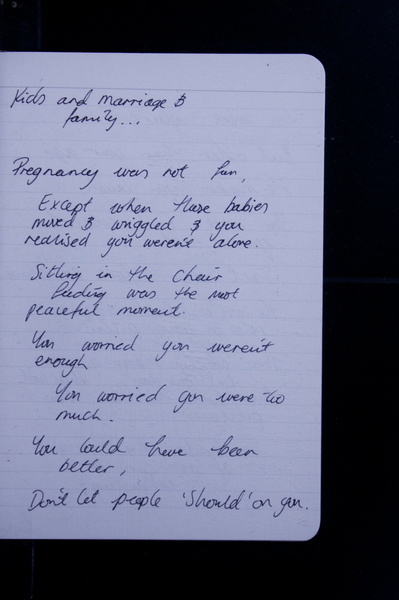 Kids and marriage &
family...
Pregnancy was not fun,
Except when those babies
moved & wriggled & you
realised you weren't alone.
Sitting in the chair
feeding was the most
peaceful moment.
You worried you weren't
enough
You worried you were too
much.
You could have been
better,
Don't let people 'should' on you.